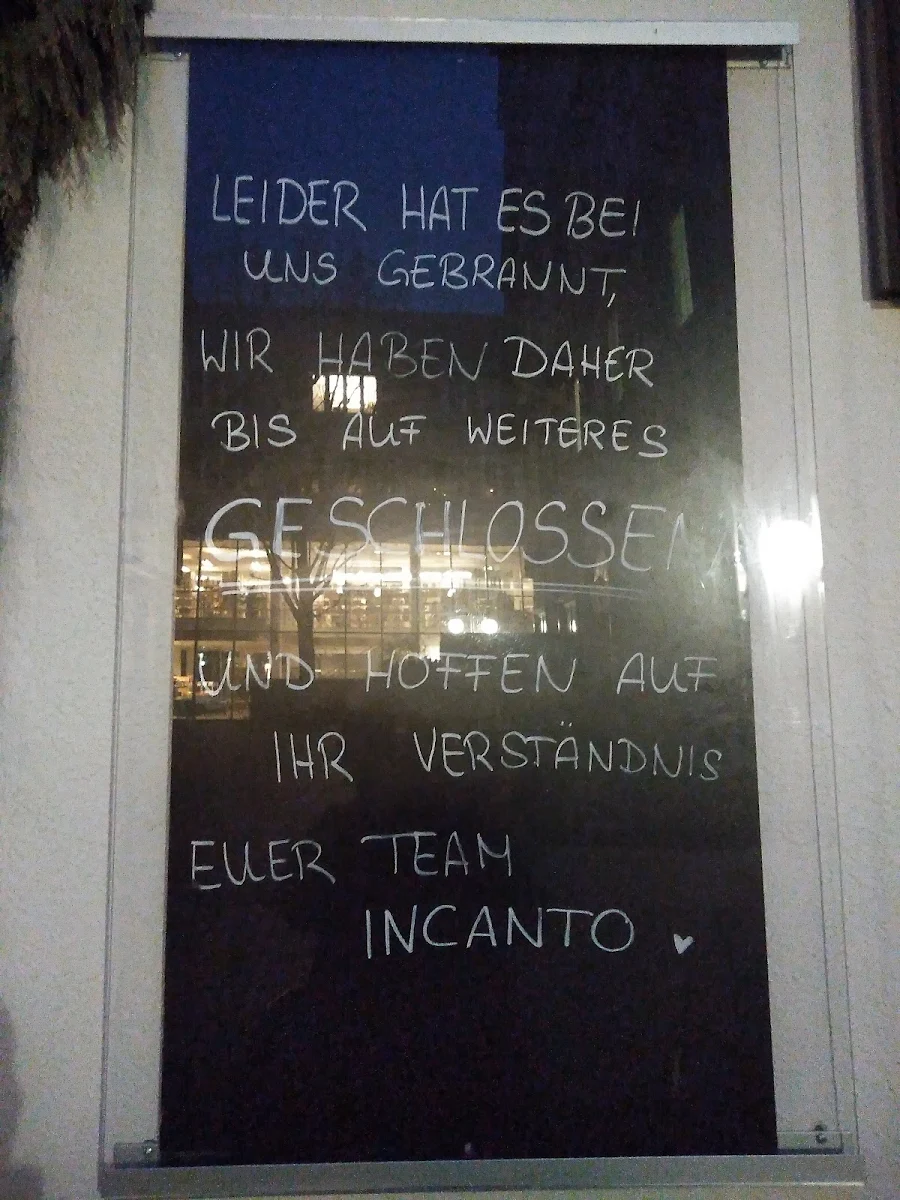 LEIDER HAT ES BEI
UNS GEBRANNT,
WIR HABEN DAHER
BIS AUF WEITERES
GESCHLOSSEN
UND HOFFEN AUF
IHR VERSTÄNDNIS
EUER TEAM
INCANTO ♥